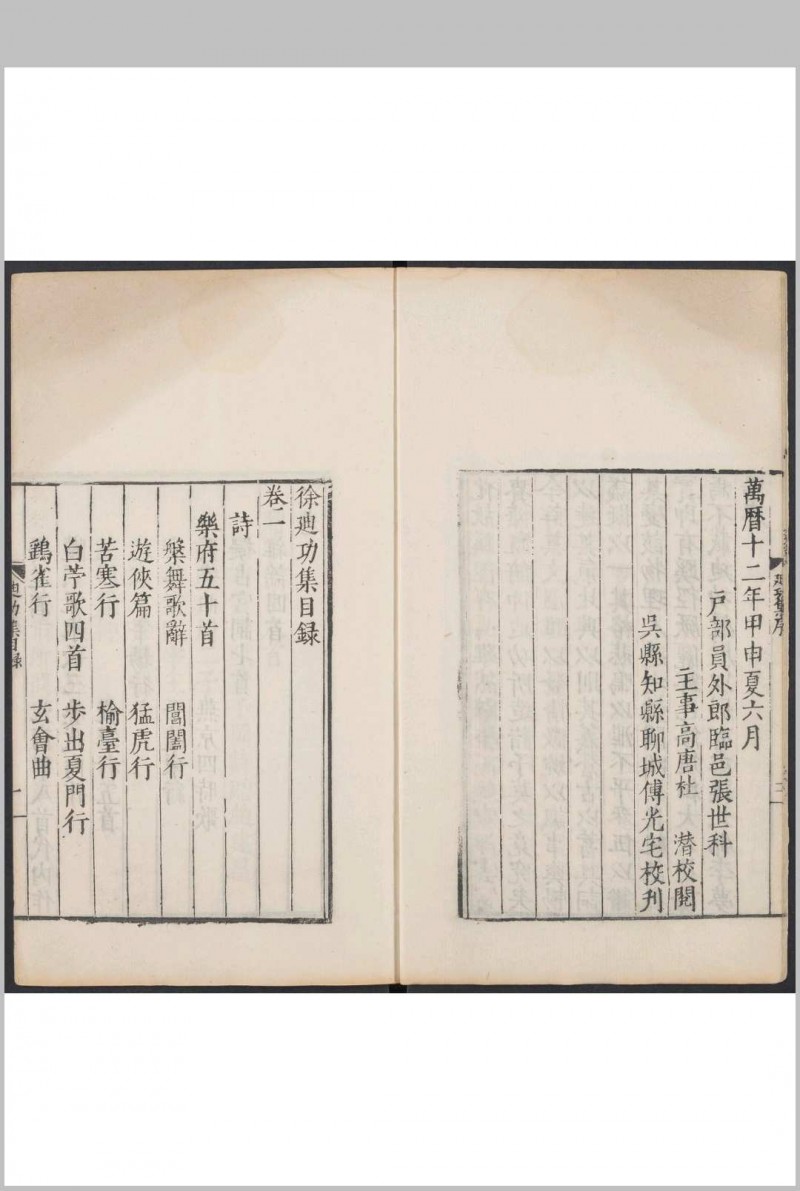 萬曆十二年甲申夏六月
戶部員外郎臨邑張世科
主事高唐杜　潛校閱
吳縣知縣聊城傅光宅校刊
徐迪功集目錄
卷一
詩
樂府五十首
槃舞歌辭　閶闔行
遊俠篇　猛虎行
苦寒行　榆臺行
白苧歌四首　步出夏門行
鷄雀行　玄會曲
迪功集目錄　一